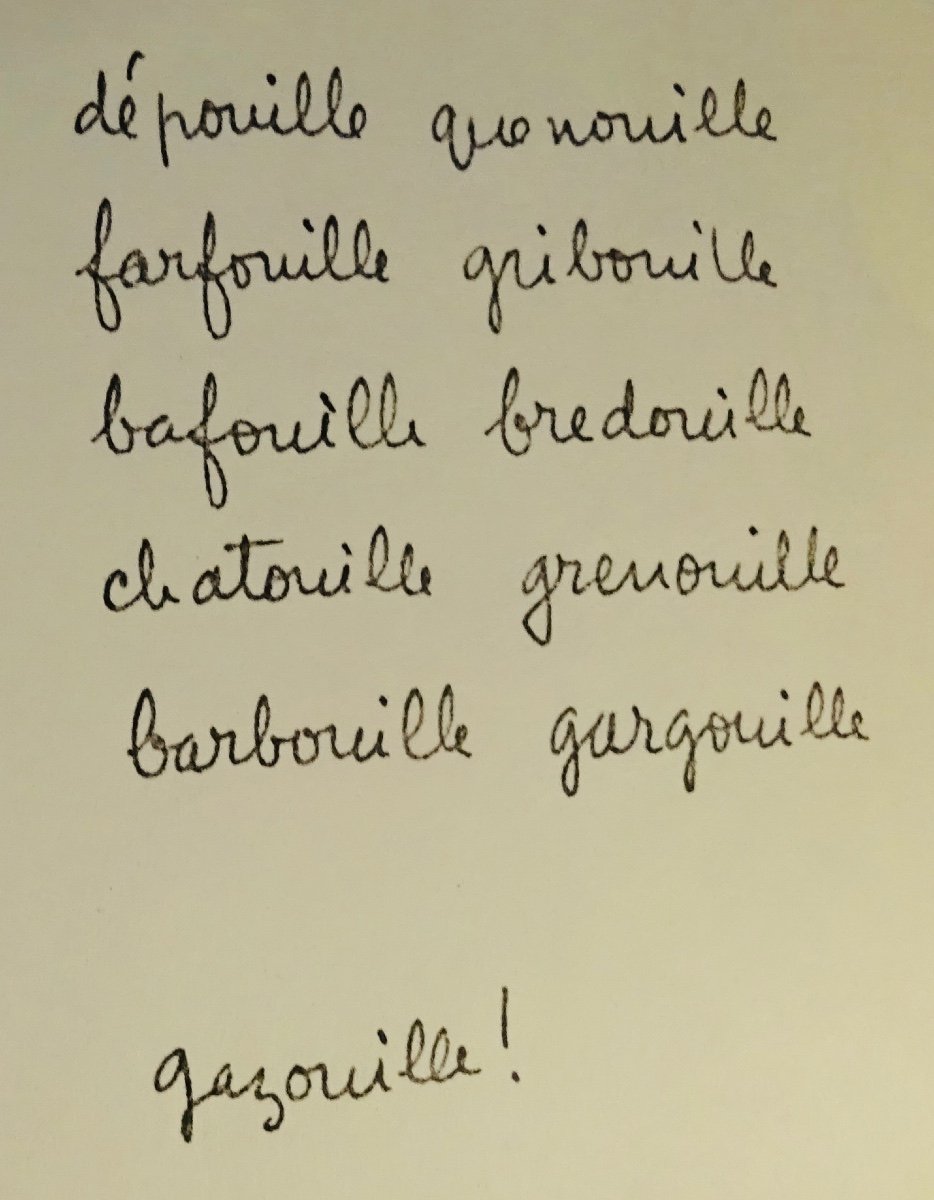 dépouille quenouille
farfouille gribouille
bafouille bredouille
chatouille grenouille
barbouille gargouille
gazouille !